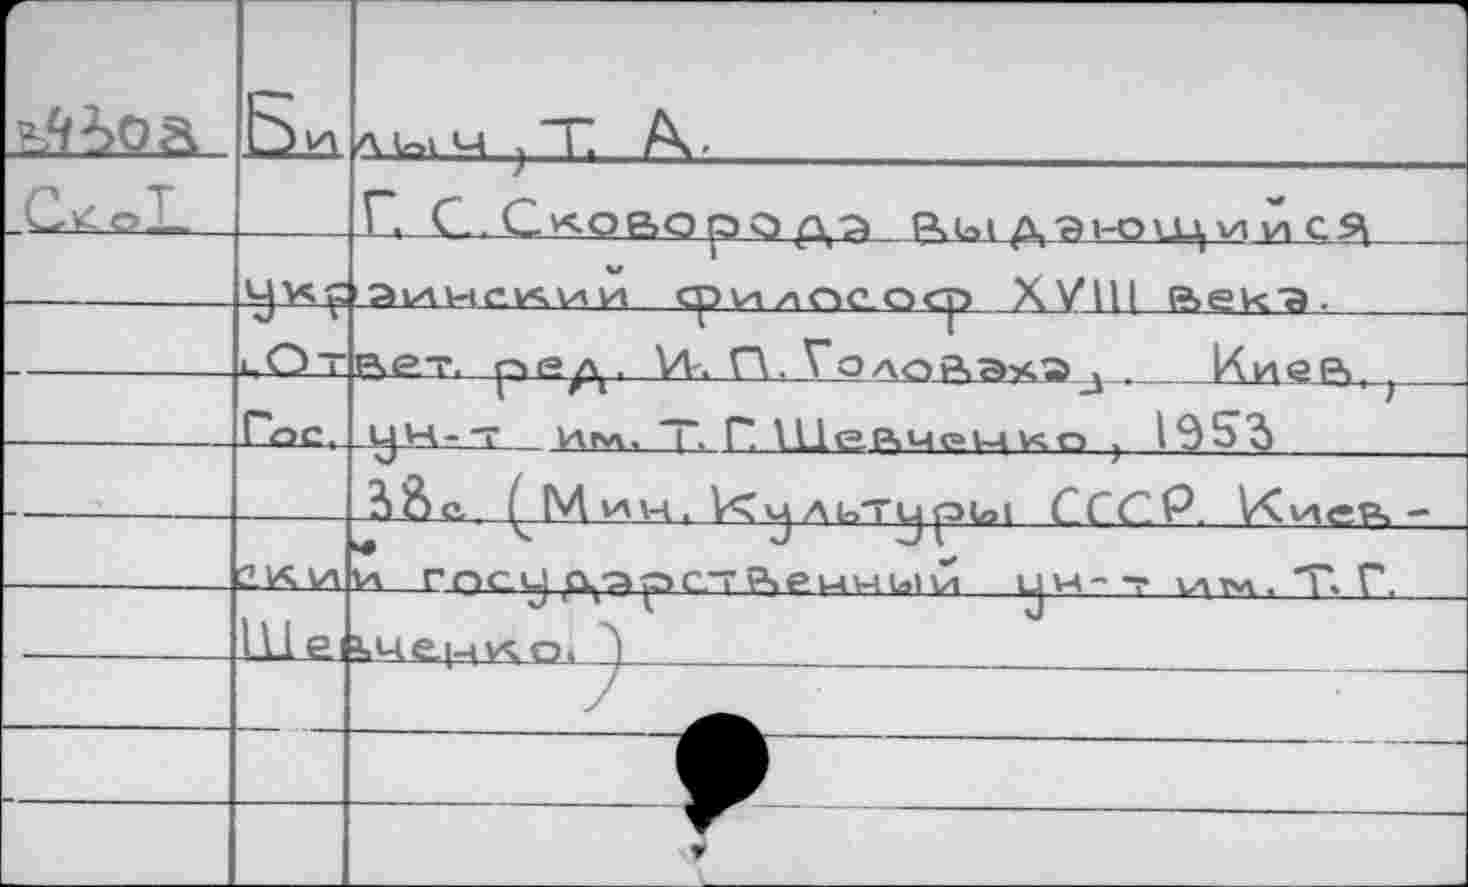 Билыч, Т. А.
СкоТ
Г. С. Сковорода выдающийся
украинский философ XVIII века.
[Ответ. ред. И. П. Головаха]. Киев,
Гос. ун-т им. Т. Г. Шевченко, 1953
38 с. (Мин. Культуры СССР. Киев-
ский государственный ун-т им. Т. Г.
Шевченко.)